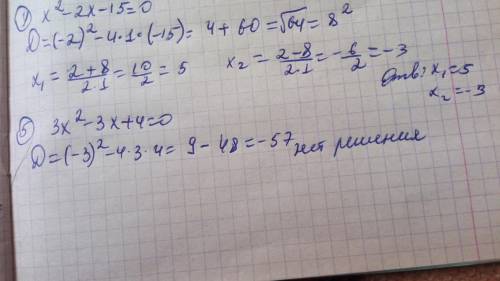 ① x²-2x-15=0
D=(-2)²-4·1·(-15)= 4+60=√64=8²
x₁=(2+8)/(2·1)=10/2=5 x₂=(2-8)/(2·1)=-6/2=-3
Отв: x₁=5
x₂=-3
⑤ 3x²-3x+4=0
D=(-3)²-4·3·4= 9-48=-57 нет решения